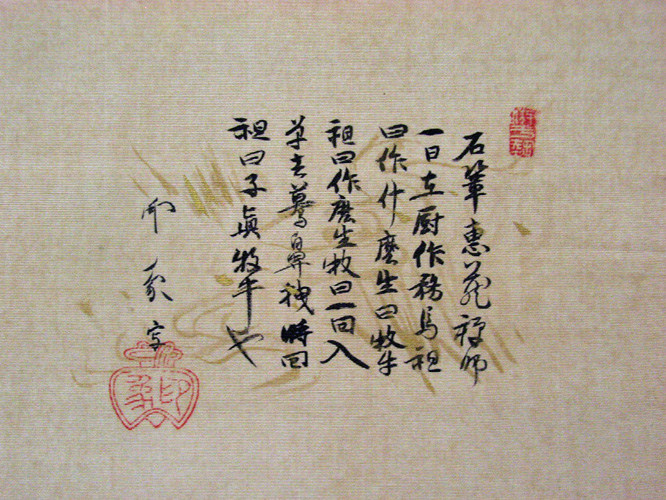 石鞏惠藏禪師
一日在厨作務馬祖
曰作什麽生曰牧牛
祖曰作麽生牧曰一回入
草去驀鼻拽將回
祖曰子眞牧牛也
印象写
印象